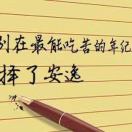 别在最能吃苦的年纪
择了安逸